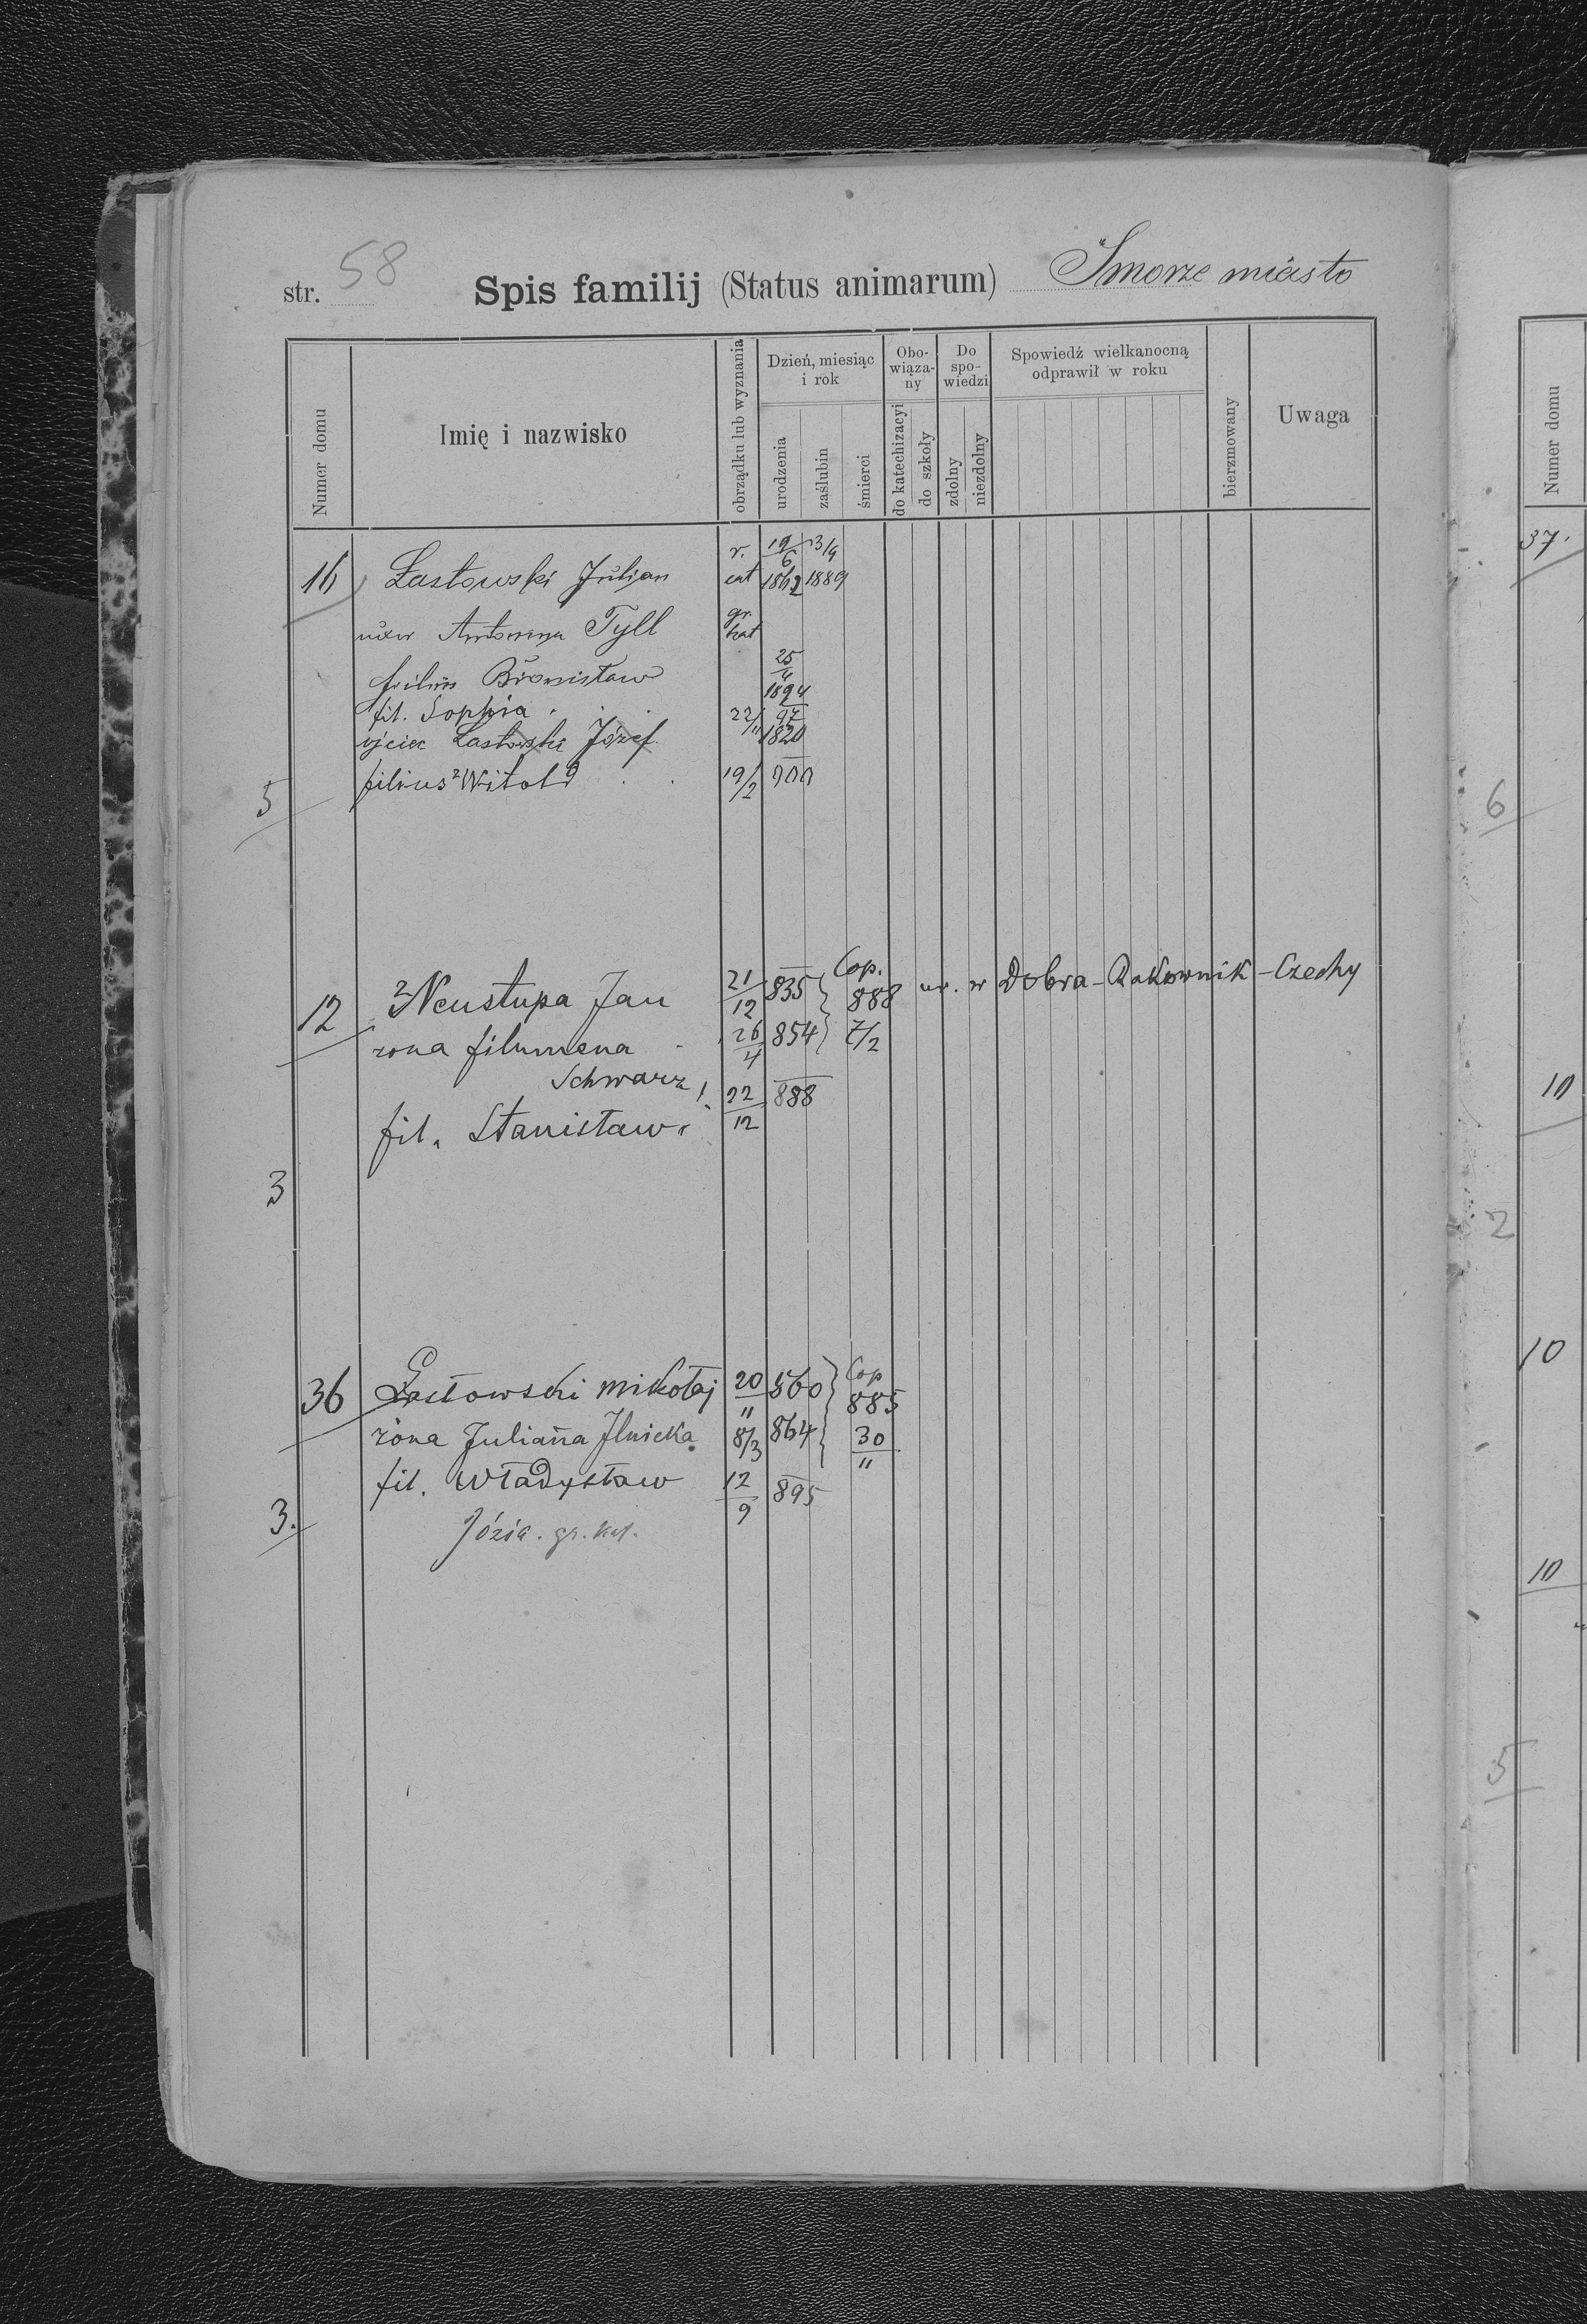 str. 58 Spis familij (Status animarum) Smorze miasto
Numer domu
Imię i nazwisko
obrządku lub wyznania
Dzień, miesiąc i rok
urodzenia
zaślubin
śmierci
Obo-wiąza-ny
do katechizacyi
do szkoły
Do spo-wiedzi
zdolny
niezdolny
Spowiedź wielkanocną odprawił w roku
bierzmowany
Uwaga
Numer domu
16 Łastowski Julian r. cat 19/6 1862 3/9 1889
uxor Antonina Tyll gr. kat
filius Bronisław 25/4 1894
fil. Sophia 22/11 97
ojciec Łastowski Józef 1820
filius Witold 19/2 900
5
12 Neustupa Jan 21/12 835 Cop. 888 ur. w Dobra-Rakownik-Czechy
żona filumena 26/4 854 7/2
Schwarz
fil. Stanisław 22/12 888
3
36 Łastowski Mikołaj 20/11 860 Cop 885
żona Juliana Ilnicka 8/3 864 30/11
fil. Władysław 12/9 895
Józia. gr. kat.
3.
37
6
10
2
10
10
5